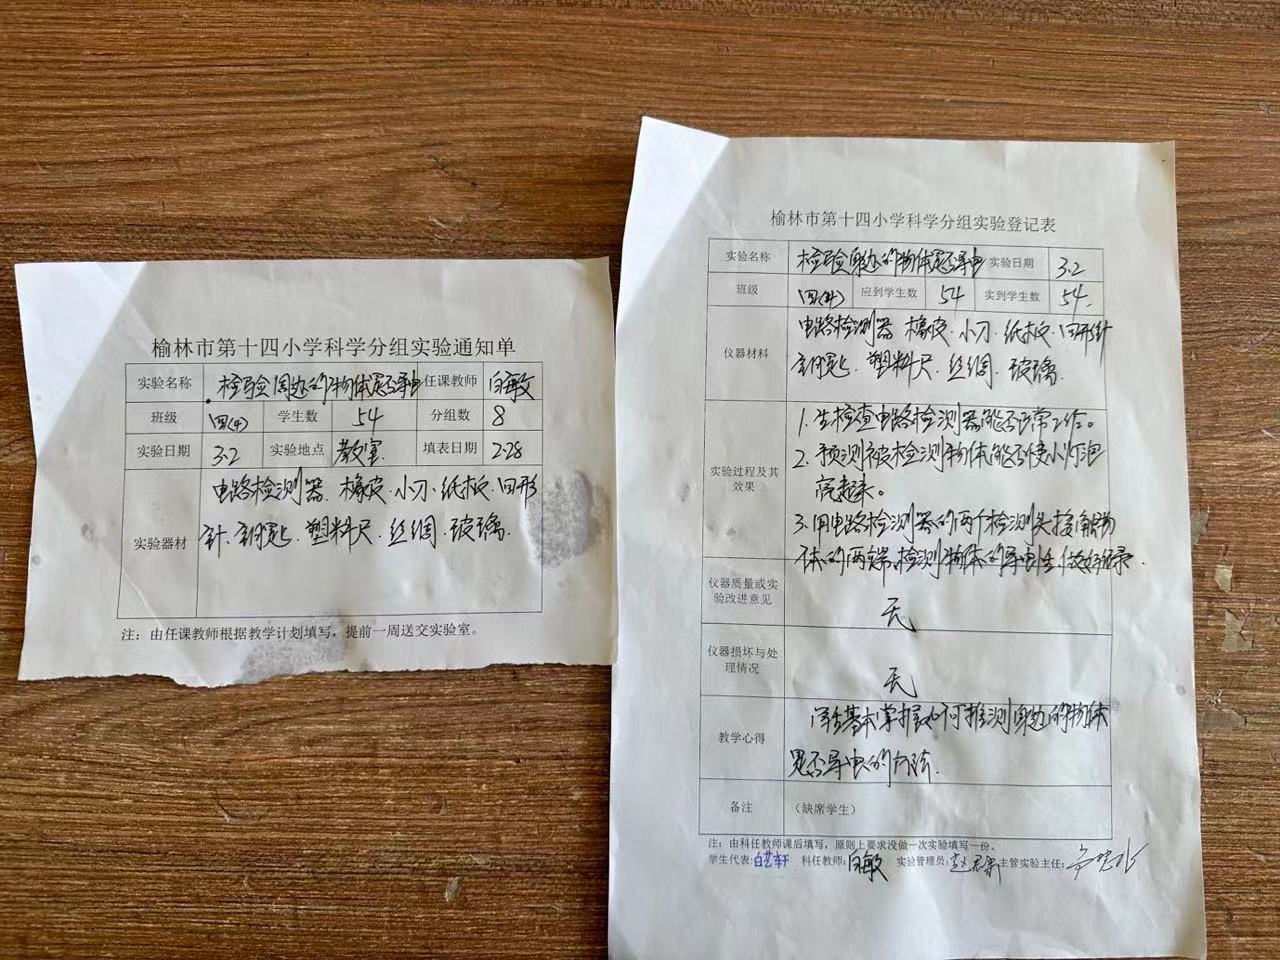 榆林市第十四小学科学分组实验通知单
实验名称 检验周边的物体是否导电 任课教师 白敏
班级 四(4) 学生数 54 分组数 8
实验日期 3.2 实验地点 教室 填表日期 2.28
实验器材 电路检测器、橡皮、小刀、纸板、回形
针、钥匙、塑料尺、丝绸、玻璃.
注：由任课教师根据教学计划填写，提前一周送交实验室。
榆林市第十四小学科学分组实验登记表
实验名称 检验周边的物体是否导电 实验日期 3.2
班级 四(4) 应到学生数 54 实到学生数 54.
仪器材料 电路检测器 橡皮、小刀、纸板、回形针
钥匙、塑料尺、丝绸、玻璃.
实验过程及其效果
1. 先检查电路检测器能否正常工作。
2. 预测被检测物体能否使小灯泡
亮起来。
3. 用电路检测器的两个检测头接触物
体的两端，检测物体的导电性，做好记录.
仪器质量或实验改进意见 无
仪器损坏与处理情况 无
教学心得 学生基本掌握如何推测周边的物体
是否导电的方法.
备注 （缺席学生）
注：由科任教师课后填写，原则上要求没做一次实验填写一份。
学生代表: 白艺轩 科任教师: 白敏 实验管理员: 主管实验主任: